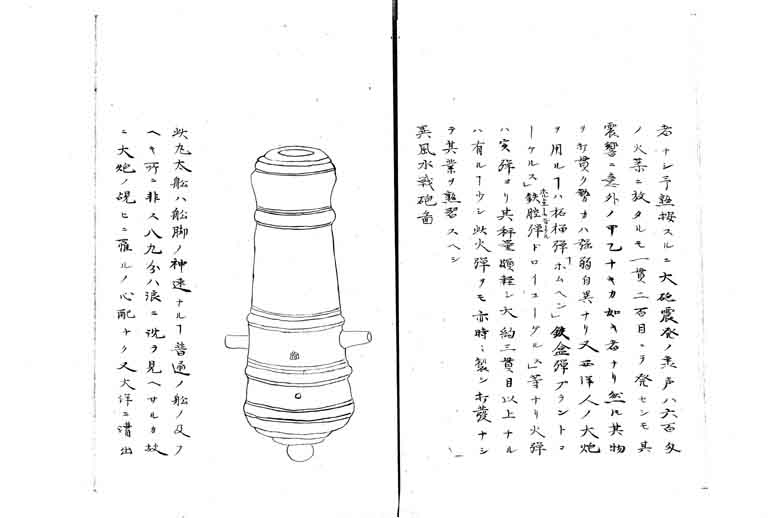 者ナシ予熟按スルニ大砲震発ノ声ハ六百匁
ノ火薬ニ放タルモ一貫二百目ニテ発セシモ其
震響ニ意外ノ甲乙ナキカ如キ者ナリ然𪜈其物
ヲ打貫ク勢力ハ強弱自異ナリ又西洋人ノ大炮
ヲ用ルヿハ柘榴弾「ホムヘン」鉄盒弾ブラントコ
ーゲルス」鉄腔弾ドロイユーゲルス」等ナリ火弾
ハ実弾ヨリ其秤量頗軽シ大約三貫目以上ナル
ハ有ルヿ少シ此火弾ヲモ亦時々製シ打発ナシ
テ其業ヲ熟習スヘシ
異風水戦砲啚
此九太船ハ船脚ノ神速ナルヿ普通ノ船ノ及フ
ヘキ所ニ非ス八九分ハ浪ニ沈ラ見ヘサルカ故
ニ大炮ノ硯ヒニ罹ルノ心配ナク又大洋ニ漕出